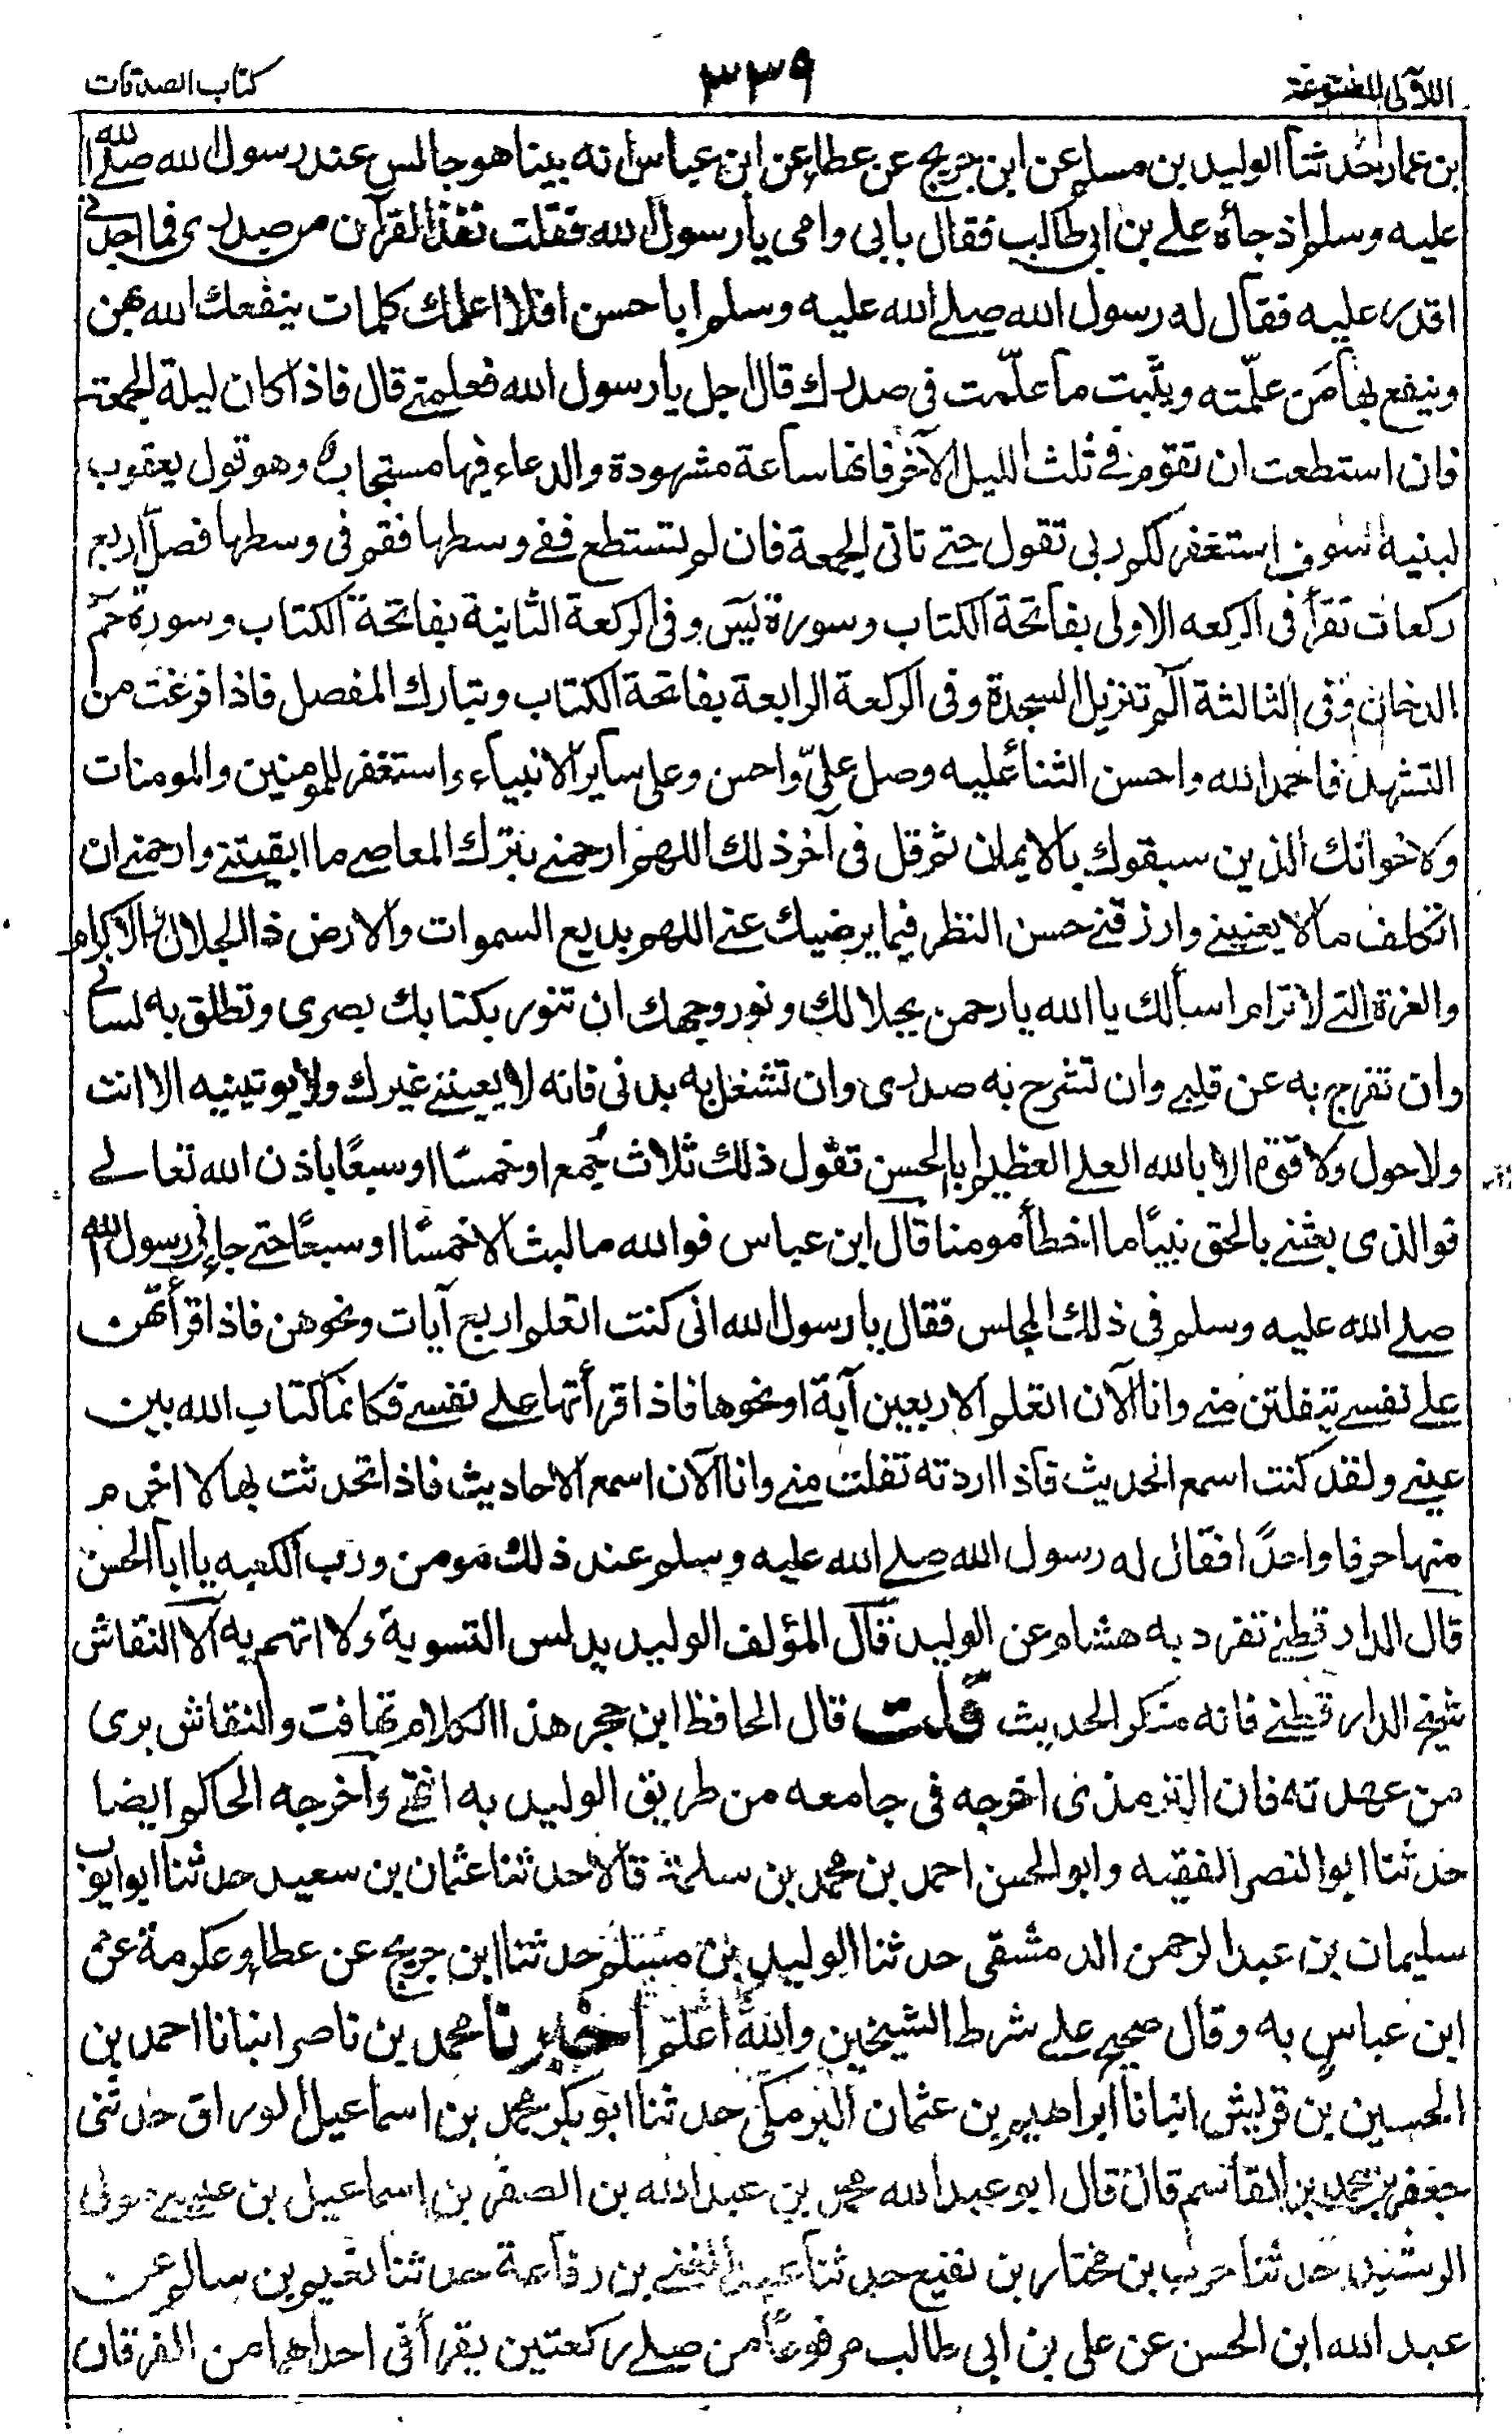 اللآلى المصنوعة
٣٣٩
كتاب الصدقات
بن عمار حدثنا الوليد بن مسلم عن ابن جريج عن عطاء عن ابن عباس انه بينا هو جالس عند رسول الله صلى الله
عليه وسلم اذ جاءه علے بن ابى طالب فقال بابى وامى يا رسول الله فقلت تفلت القرآن من صدرى فما اجدنے
اقدر عليه فقال له رسول الله صلے الله عليه وسلم ابا حسن افلا اعلمك كلمات ينفعك الله بهن
وينفع بها من علّمته ويثبت ما علّمت فى صدرك قال اجل يا رسول الله فعلمنے قال فاذا كان ليلة الجمعة
فان استطعت ان تقوم فے ثلث الليل الآخر فانها ساعة مشهودة والدعاء فيها مستجاب وهو قول يعقوب
لبنيه سوف استغفر لكم ربى تقول حتے تاتى الجمعة فان لم تستطع ففے وسطها فقم فى وسطها فصل اربع
ركعات تقرأ فى الركعه الاولى بفاتحة الكتاب وسورة يٓس وفى الركعة الثانية بفاتحة الكتاب وسورة حمٓ
الدخان وفى الثالثة المٓ تنزيل السجدة وفى الركعة الرابعة بفاتحة الكتاب وتبارك المفصل فاذا فرغت من
التشهد فاحمد الله واحسن الثناء عليه وصل علىّ واحسن وعلى ساير الانبياء واستغفر للمومنين والمومنات
ولاخوانك الذين سبقوك بالايمان ثم قل فى آخر ذلك اللهم ارحمنے بترك المعاصے ما ابقيتنے وارحمنے ان
اتكلف ما لا يعنينے وارزقنے حسن النظر فيما يرضيك عنے اللهم بديع السموات والارض ذا الجلال والاكرام
والعزة التے لا ترام اسألك يا الله يا رحمن بجلالك ونور وجهك ان تنور بكتابك بصرى وتطلق به لسانے
وان تفرج به عن قلبے وان تشرح به صدرى وان تشغل به بدنى فانه لا يعيننے غيرك ولا يوتينيه الا انت
ولا حول ولا قوة الا بالله العلے العظيم ابا الحسن تقول ذلك ثلاث جُمع او خمسًا او سبعًا باذن الله تعالے
فوالذى بعثنے بالحق نبيًا ما اخطأ مومنا قال ابن عباس فوالله ما لبث الا خمسًا او سبعًا حتے جاءنى رسول الله
صلے الله عليه وسلم فى ذلك المجلس فقال يا رسول الله انى كنت اتعلم اربع آيات ونحوهن فاذا قرأتهن
علے نفسے تتفلتن منے وانا الآن اتعلم الاربعين آية او نحوها فاذا قرأتها علے نفسے فكانما كتاب الله بين
عينے ولقد كنت اسمع الحديث فاذا اردته تفلت منے وانا الآن اسمع الاحاديث فاذا تحدثت بها لا اخرم
منها حرفا واحدًا فقال له رسول الله صلے الله عليه وسلم عند ذلك مومن ورب الكعبه يا ابا الحسن
قال الدارقطنے تفرد به هشام عن الوليد قال المؤلف الوليد يدلس التسوية ولا اتهم به الا النقاش
شيخ الدارقطنے فانه منكر الحديث قلت قال الحافظ ابن حجر هذا الكلام تهافت والنقاش برى
من عهدته فان الترمذى اخرجه فى جامعه من طريق الوليد به انتهے واخرجه الحاكم ايضا
حدثنا ابو النصر الفقيه وابو الحسن احمد بن محمد بن سلمة قالا حدثنا عثمان بن سعيد حدثنا ابو ايوب
سليمان بن عبد الرحمن الدمشقى حدثنا الوليد بن مسلم حدثنا ابن جريج عن عطاء وعكرمة عن
ابن عباس به وقال صحيح علے شرط الشيخين والله اعلم اخبرنا محمد بن ناصر انبانا احمد بن
الحسين بن قريش انبانا ابراهيم بن عثمان البرمكى حدثنا ابو بكر محمد بن اسماعيل الوراق حدثنى
جعفر بن محمد بن القاسم قال قال ابو عبد الله محمد بن عبد الله بن الصقر بن اسماعيل بن مولى
حدثنا حرب بن مختار بن نفيع حدثنا عبد الغنے بن رفاعة حدثنا نعيم بن سالم عن
عبد الله ابن الحسن عن على بن ابى طالب مرفوعًا من صلے ركعتين يقرأ فى احداهما من الفرقان